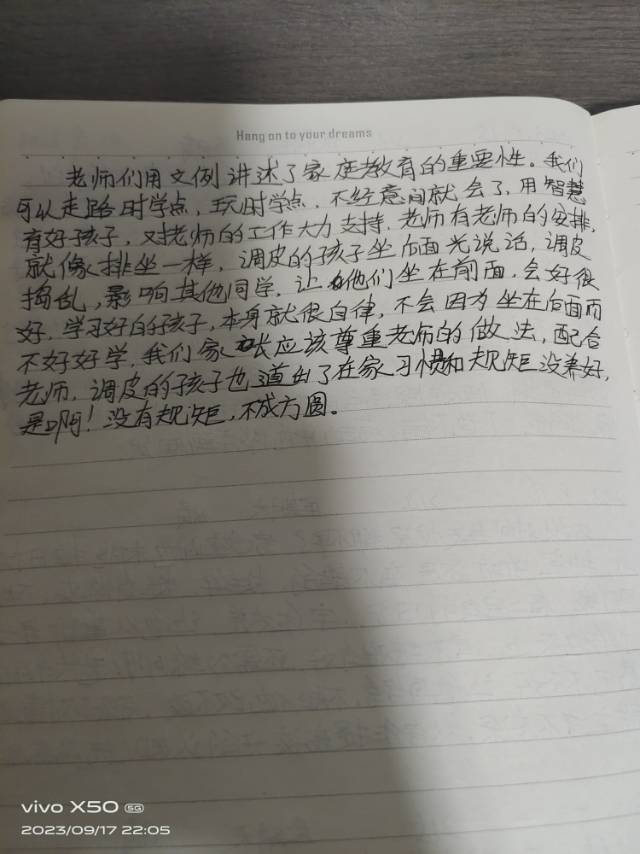 Hang on to your dreams
老师们用文例讲述了家庭教育的重要性。我们
可以走路时学点,玩时学点,不经意间就会了,用智慧
育好孩子,对老师的工作大力支持,老师有老师的安排,
就像排坐一样,调皮的孩子坐后面光说话,调皮
捣乱,影响其他同学,让他们坐在前面,会好很
好,学习好的孩子,本身就很自律,不会因为坐在后面而
不好好学,我们家长应该尊重老师的做法,配合
老师,调皮的孩子也道出了在家习惯和规矩没养好,
是啊!没有规矩,不成方圆。
vivo X50 5G
2023/09/17 22:05